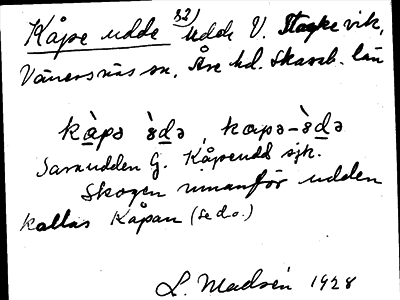 Kåpe udde 32) Udde V. Stackevik,
Vänersnäs sn, Åse hd. Skarab. län
kàpə ùdə, kapə-ùdə
Samudden G. Kåpeudd sjk.
Skogen innanför udden
kallas Kåpan (se d.o.)
L. Madsén 1928